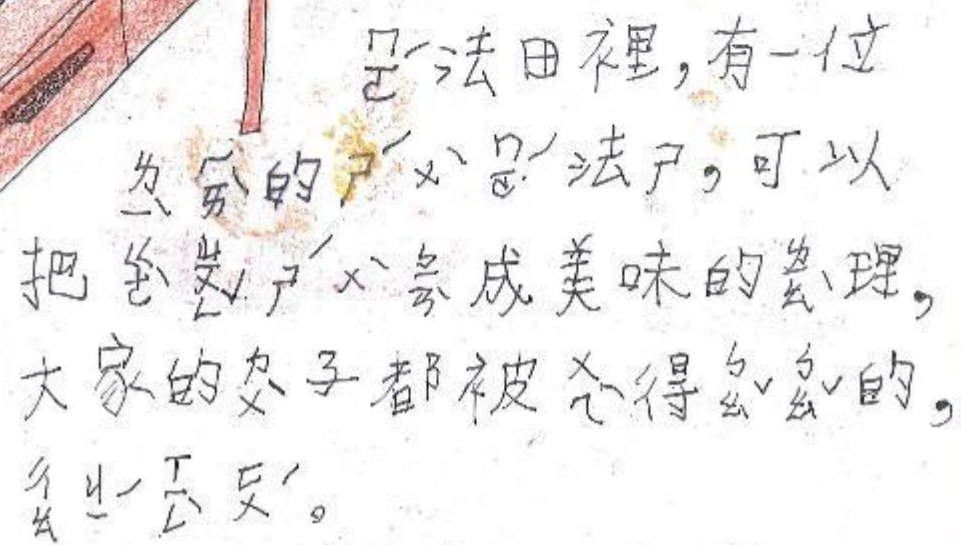 ㄇㄛˊ法田裡,有一位
ㄌㄧˋㄏㄞˋ的ㄕˊㄨˋㄇㄛˊ法ㄕ,可以
把ㄍㄜˋㄓㄨㄥˇㄕˊㄨˋㄅㄧㄢˋ成美味的ㄌㄧㄠˋ理,
大家的ㄉㄨˋ子都被ㄨㄟˋ得ㄅㄠˇㄅㄠˇ的,
ㄔㄠㄐㄧˊㄒㄧㄥˋㄈㄨˊ。